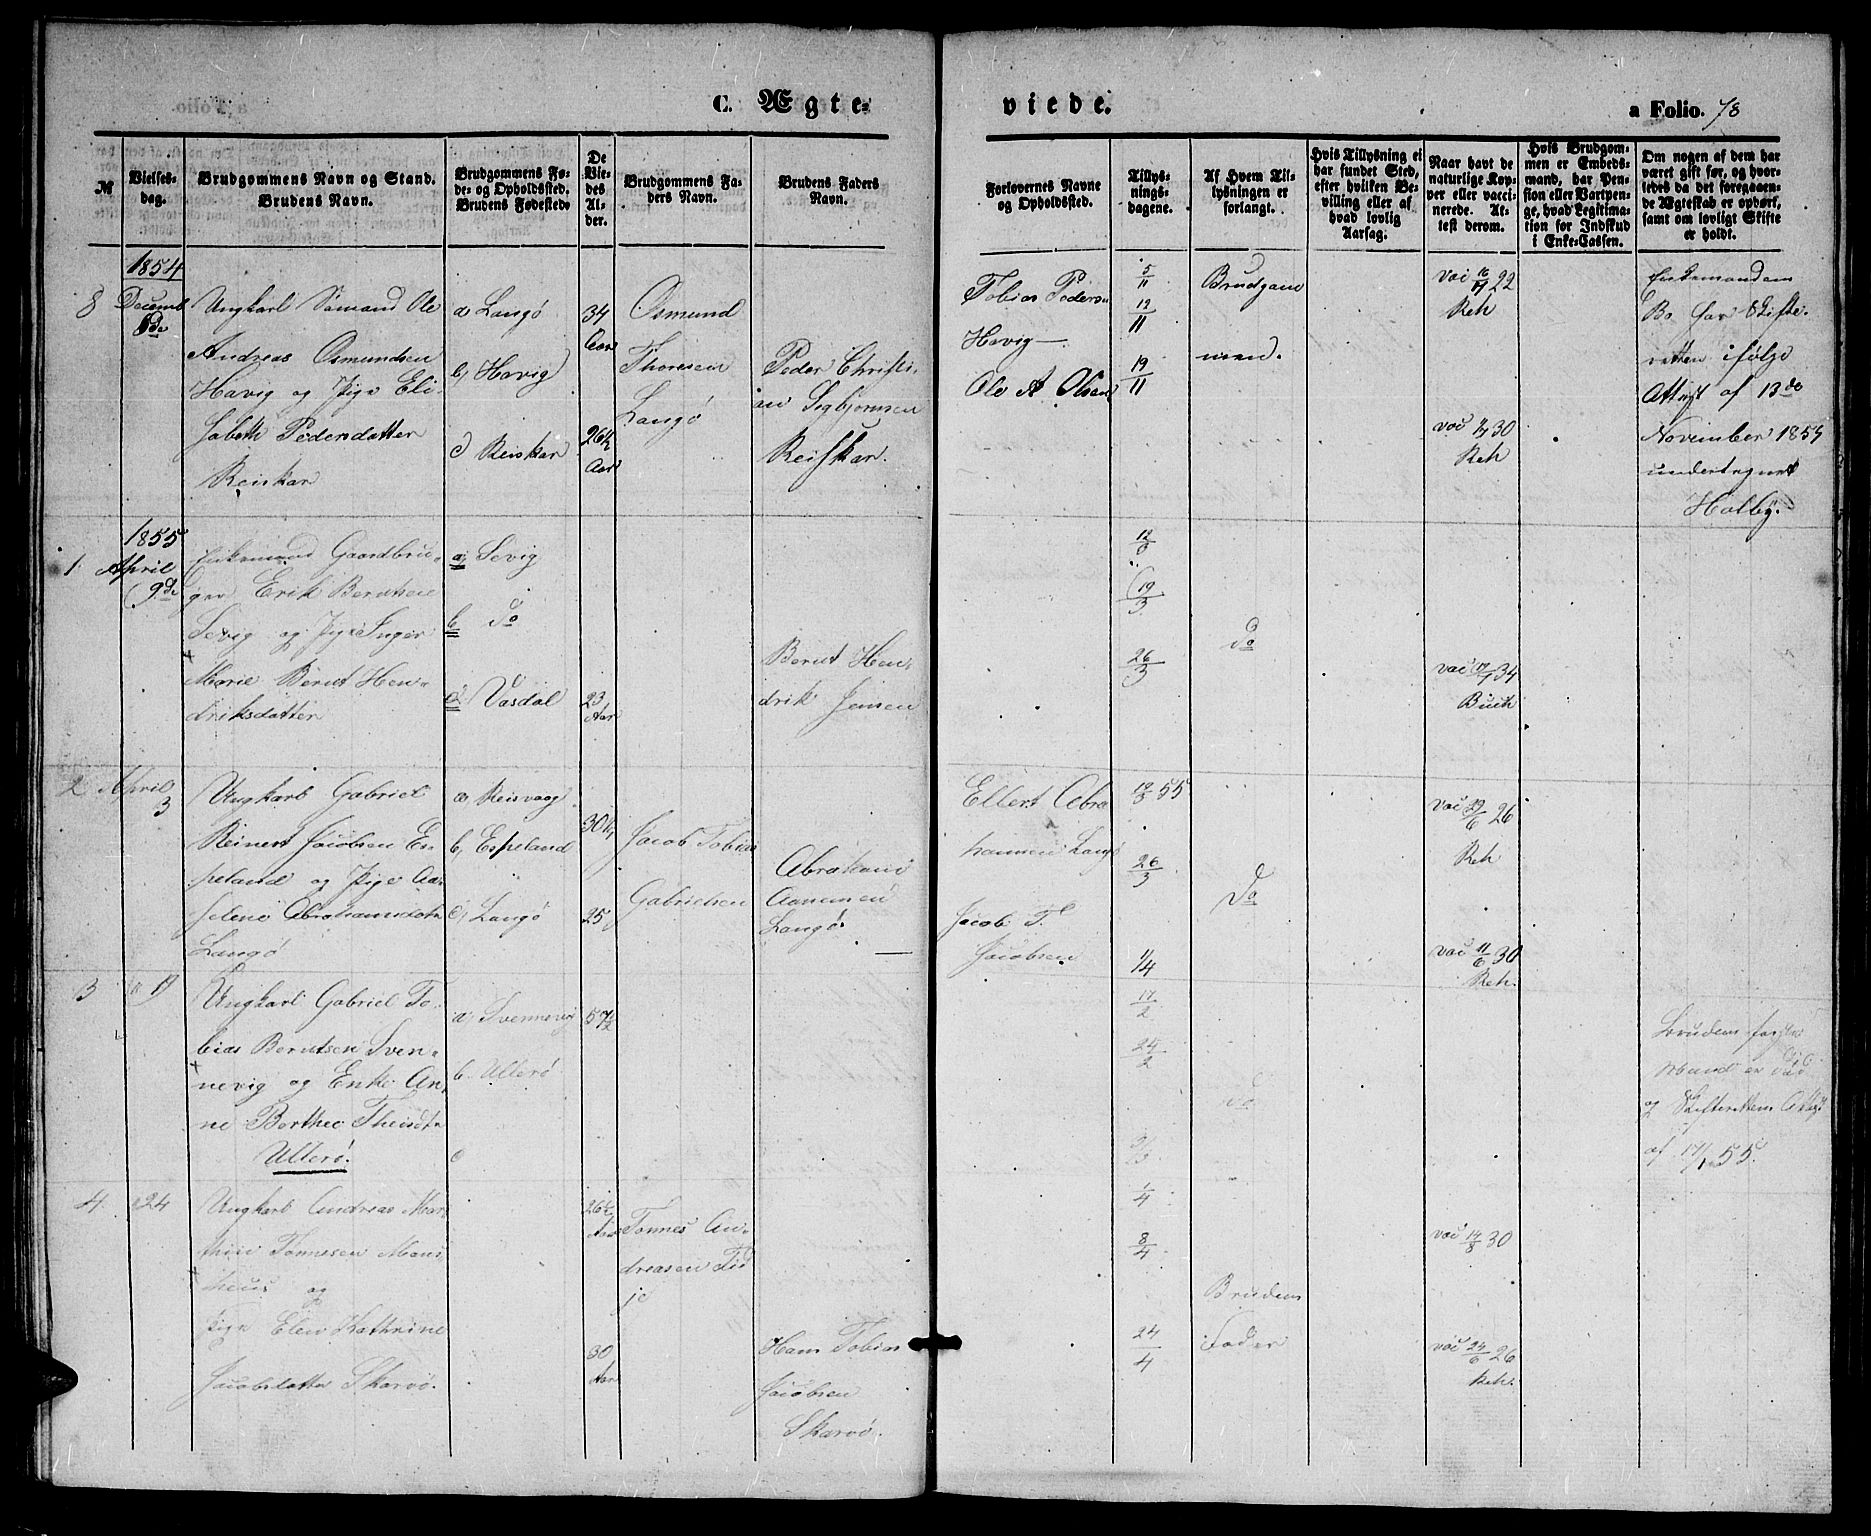 C. Ægte-
viede.
a Folio. 78
№
Vielses-
dag.
Brudgommens Navn og Stand.
Brudens Navn.
Brudgommens Fø-
de- og Opholdssted.
Brudens Fødested.
De
Vie-
des
Al-
der.
Brudgommens Fa-
ders Navn.
Brudens Faders
Navn.
Forlovernes Navne
og Opholdssted.
Tillys-
nings-
dagene.
Af Hvem Til-
lysningen er
forlangt.
Hvis Tillysning ei
har fundet Sted,
efter hvilken Be-
villing eller af
hvad lovlig
Aarsag.
Naar havt de
naturlige Kop-
per eller vacci-
nerede. At-
test derom.
Hvis Brudgom-
men er Embeds-
mand, har Pen-
sion eller Vartpen-
ge, hvad Legitima-
tion for Indskud
i Enke-Cassen.
Om nogen af dem har
været gift før, og hvor-
ledes da det foregaaen-
de Ægteskab er ophørt,
samt om lovligt Skifte
er holdt.
1854
8 Decemb
Ungkarl Sømand Ole
Andreas Osmundsen
Havig og Pige Eli-
sabeth Pedersdatter
Reiskar
a) Langø
b) Havig
c) Reiskar
34
Aar
26½
Aar
Osmund
Thoresen
Langø
Peder Christi-
an Sigbjørnsen
Reiskar.
Tobias Pedersen
Havig
Ole A Olsen
5/11
12/11
19/11
Brudgom-
men.
vac 22
Reh
vac 30
Reh
Enkemandens
Bo har Skifte-
retten ifølge
Attest af 13de
November 1854
undertegnet
Holby.
1855
1 April
9de
Enkemand Gaardbru-
ger Erik Berntsen
Sevig og Pige Inger
Marie Bernt Hen-
driksdatter
a) Sevig
b do
c) Vasdal
23
Aar
Bernt Hen-
drik Jensen
12/3
19/3
26/3
do
vac 17/7 34
Buch
2 April
3
Ungkarl Gabriel
Reinert Jacobsen Es-
peland og Pige Aa-
selene Abrahamsdatr
Langø
a) Reisvaag
b) Espeland
c) Langø
30½
25
Jacob Tobias
Gabrielsen
Abraham
Aanensen
Langø.
Ellert Abra
hamsen Langø
Jacob T.
Jacobsen
55
26/3
1/4
do
vac 29/6 26
Reh
vac 11/6 30
Reh.
3 19
Ungkarl Gabriel To-
bias Berntsen Sven-
nevig og Enke An-
ne Berthe Theisdtr
Ullerø.
a) Svennevig
b. Ullerø
c
57½
17/2
25/2
do
Brudens første
Mand er død
og Skifterettens Attest
af 17/1 55.
4 24
Ungkarl Andreas Mar-
thin Tønnesen
og
Pige Elen Kathrine
Jacobsdatter Skarvø.
26½
Aar
30
Aar
Tønnes An-
dreasen
Hans Tobias
Jacobsen
Skarvø.
1/4
8/4
24/4
Brudens
Fader
vac 14/8 30
vac 24/6 26
Reh.